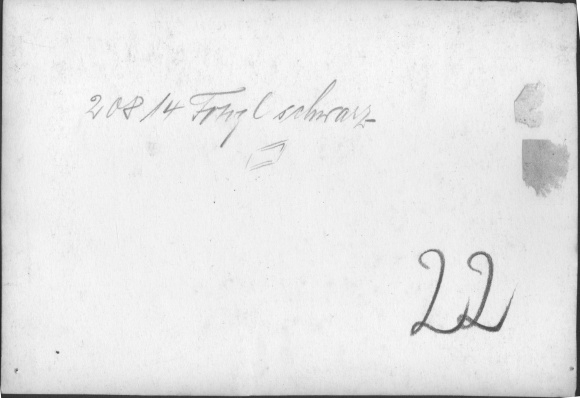 208/4 schwarz
22